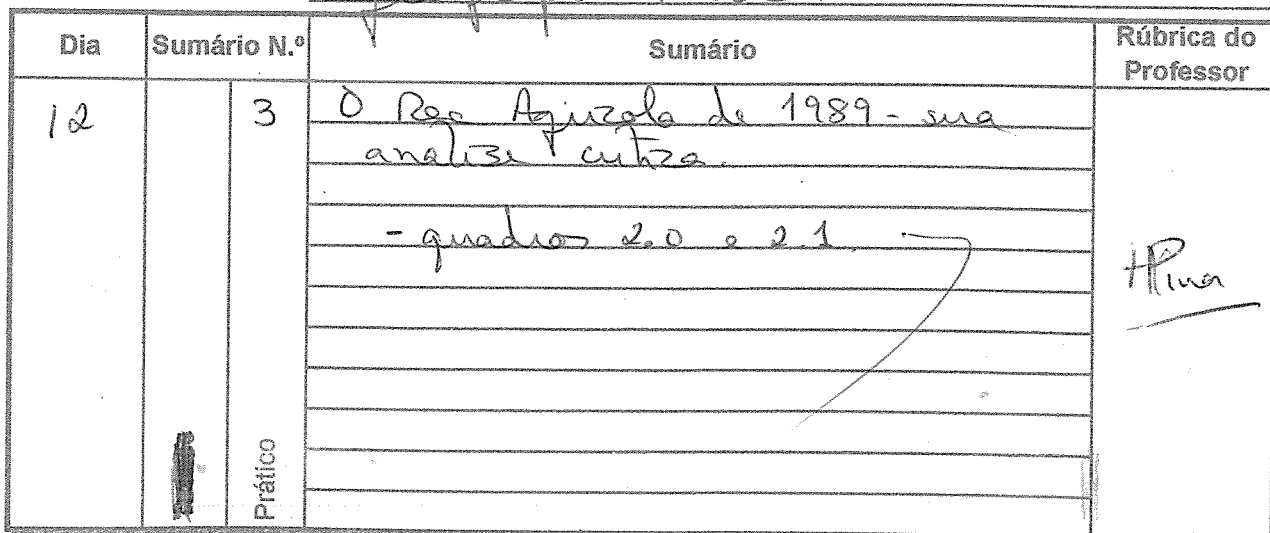 Dia Sumário N.º Sumário Rúbrica do Professor
12 3 O Rec. Agrícola de 1989 - sua
análise crítica.
- quadros 2.0 e 2.1
HPina
Prático